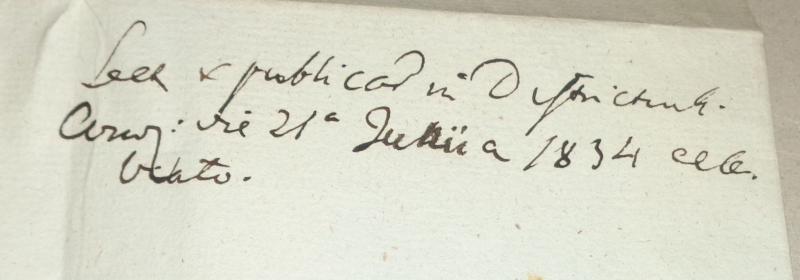 Lect & publicat in Districtuali
Congr: die 21ª Junii a 1834 cele
brato.